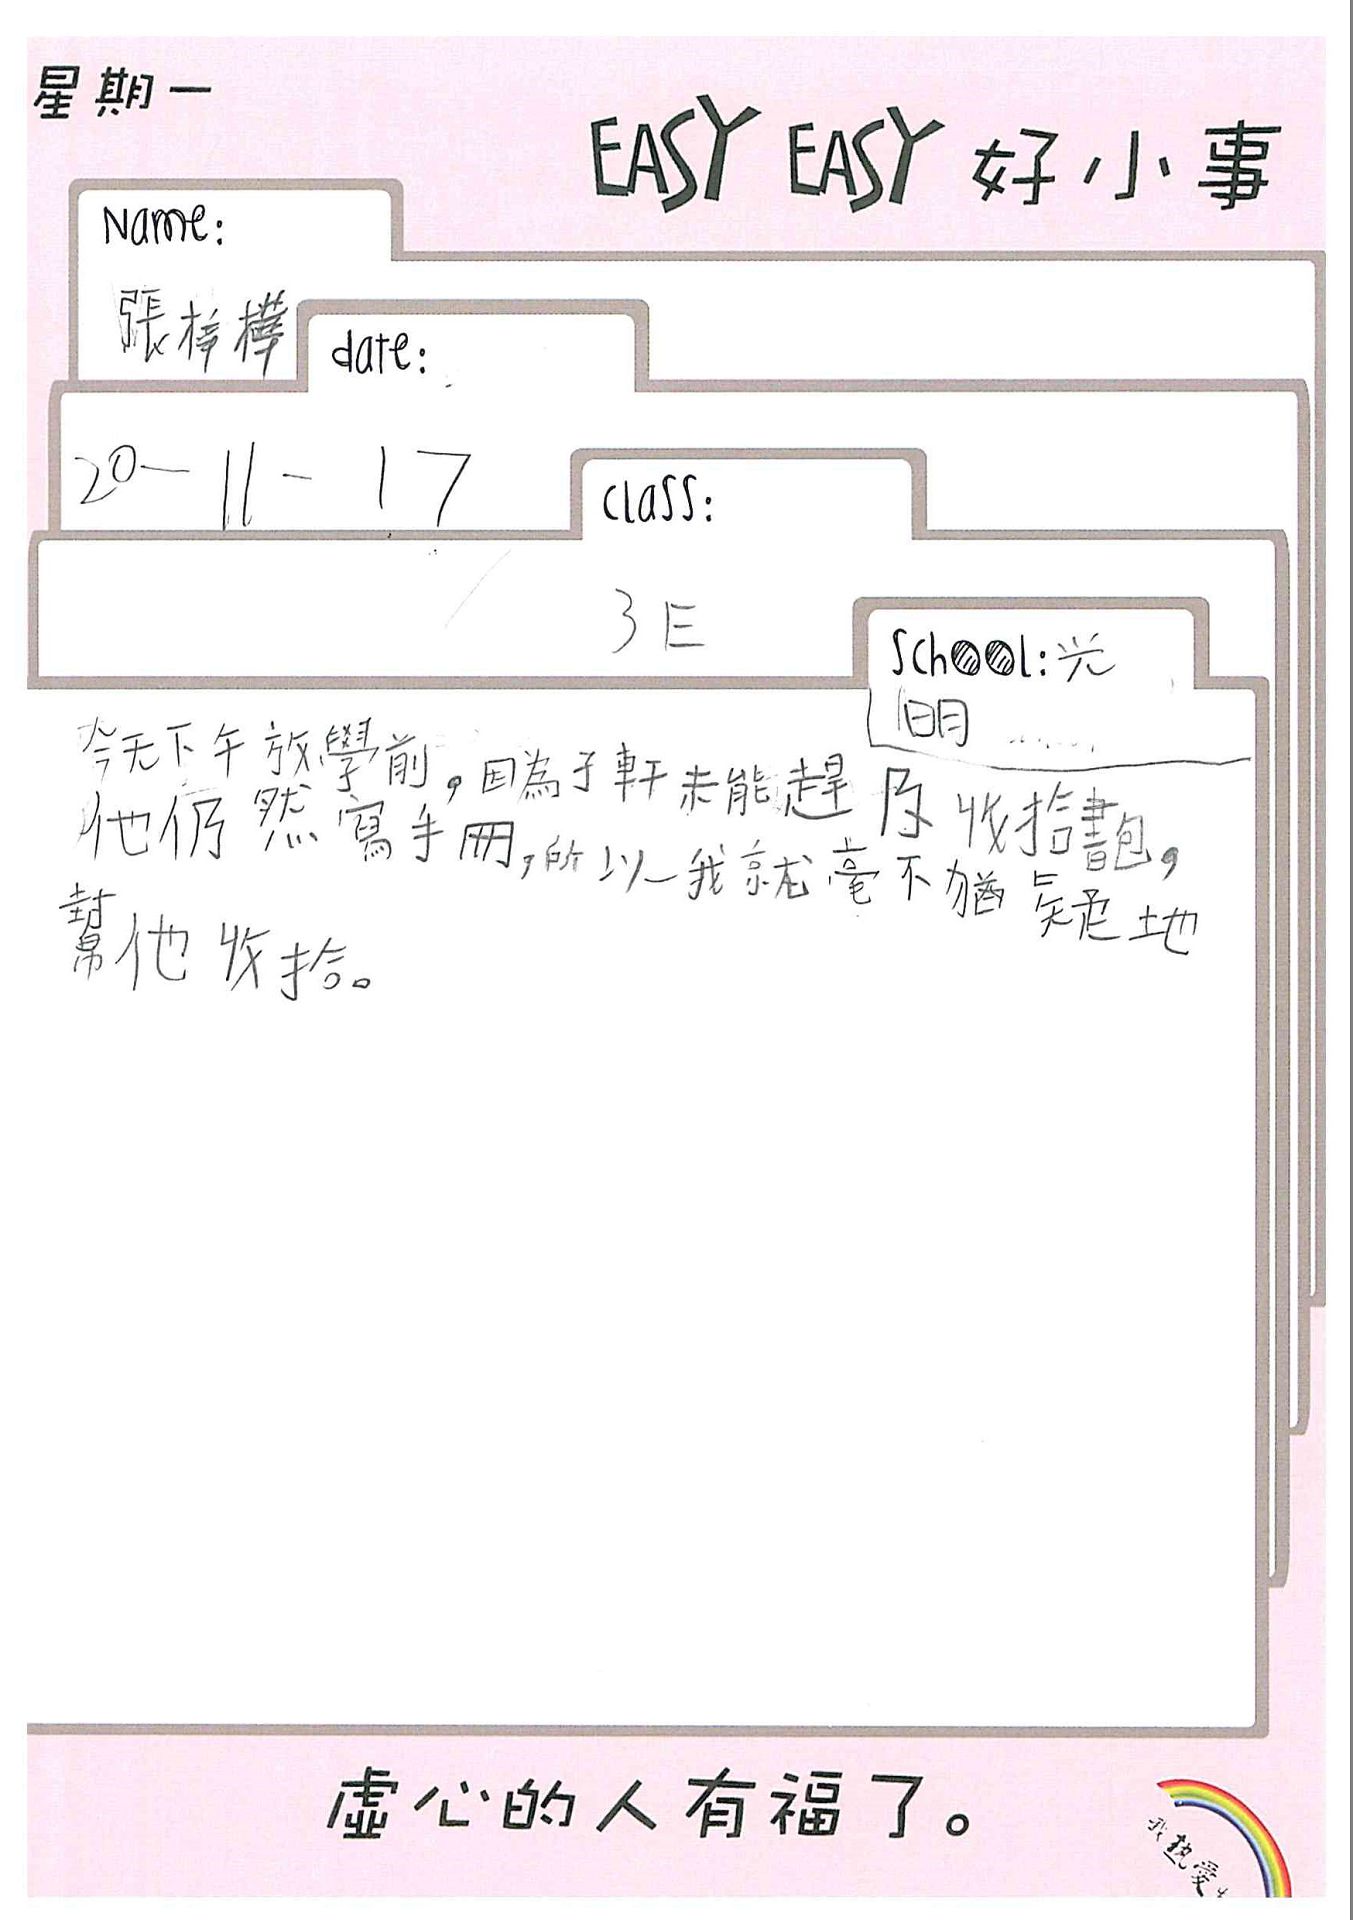 星期一
EASY EASY 好小事
Name:
張梓樺
date:
20-11-17
class:
3E
School:光
明
今天下午放學前,因為子軒未能趕及收拾書包,
他仍然寫手冊,所以我就毫不猶疑地
幫他收拾。
虛心的人有福了。
我熱愛